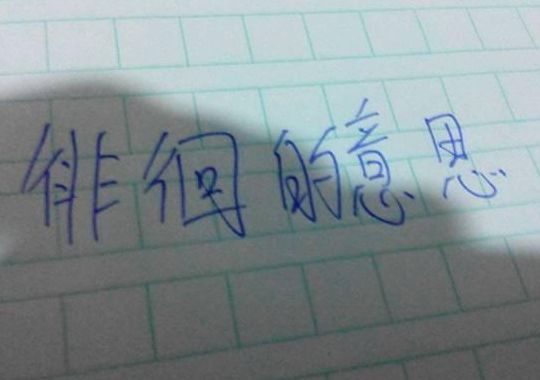 徘徊的意思